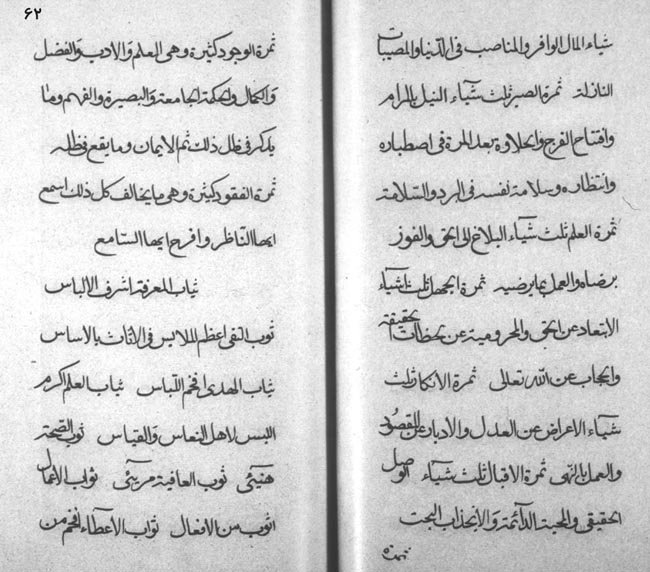 شیاء المال الوافر و المناصب فی الدنیا و المصیبات
النازلة ثمرة الصبر ثلث شیآء النیل بالمرام
و افتتاح الفرج و الحلاوة بعد المرة فی اصطباره
و انتظاره و سلامة نفسه فی البرد و السلامة
ثمرة العلم ثلث شیآء البلاغ الی الحق و الفوز
برضاه و العمل بما یرضیه ثمرة الجهل ثلث اشیآء
الابتعاد عن الحق و المحرومیة عن لحظات الحقیقة
و الحجاب عن الله تعالی ثمرة الانکار ثلث
شیآء الاعراض عن العدل و الادبار عن المقصود
و العمل بالنهی ثمرة الاقبال ثلث شیآء الوصل
الحقیقی و المحبة الدآئمة و الانجذاب البحت
ثمرة
۶۲
ثمرة الوجود کثیرة و هی العلم و الادب و الفضل
و الکمال و الحکمة الجامعة و البصیرة و الفهم و ما
یذکر فی ظل ذلک ثم الایمان و ما یقع فی ظله
ثمرة الفقود کثیرة و هی ما یخالف کل ذلک اسمع
ایها الناظر و افرح ایها السامع
ثیاب المعرفة اشرف الالباس
ثوب التقی اعظم الملابس فی الاثاث بالاساس
ثیاب الهدی افخم اللباس ثیاب العلم اکرم
البس لاهل النعاس و القیاس ثوب الصحة
هنیئی ثوب العافیة مریئی ثواب الاعمال
اثوب من الافعال ثواب الاعطآء افخم من